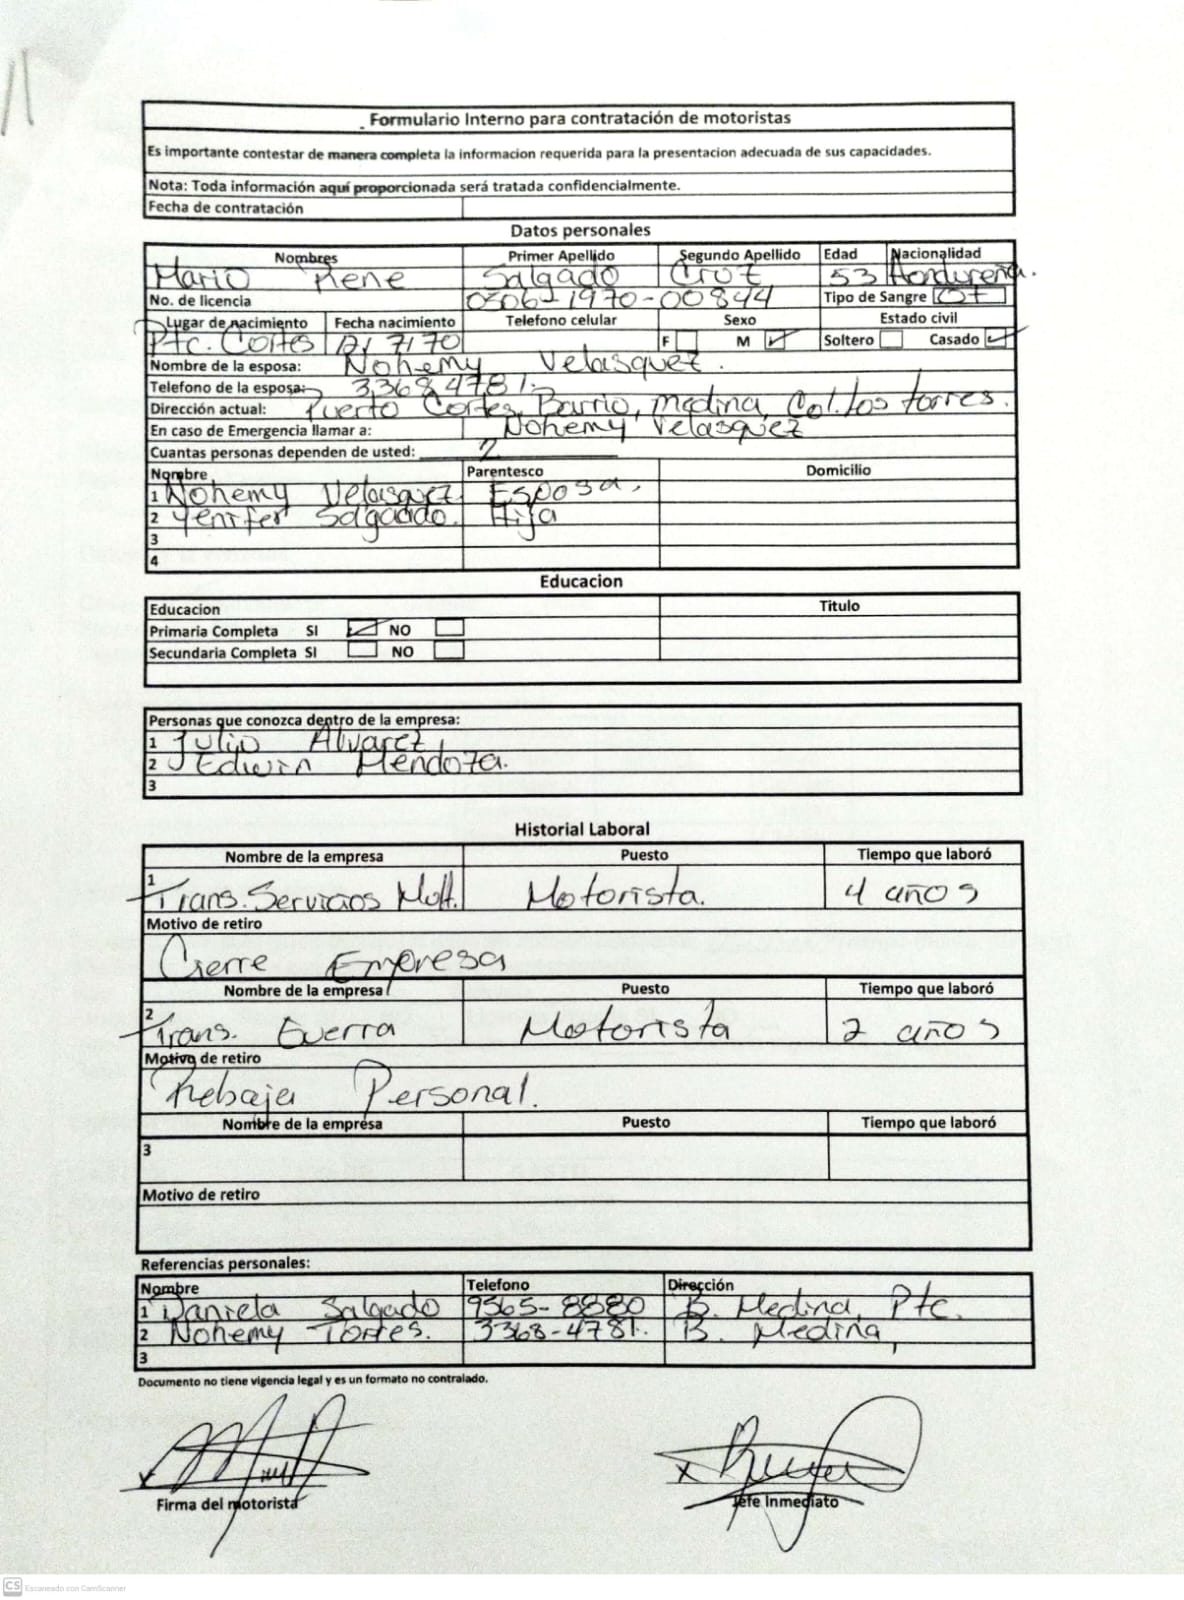 Formulario Interno para contratación de motoristas
Es importante contestar de manera completa la informacion requerida para la presentacion adecuada de sus capacidades.
Nota: Toda información aquí proporcionada será tratada confidencialmente.
Fecha de contratación
Datos personales
Nombres Primer Apellido Segundo Apellido Edad Nacionalidad
Mario Rene Salgado Cruz 53 Hondureña.
No. de licencia 0506-1970-00844 Tipo de Sangre O+
Lugar de nacimiento Fecha nacimiento Telefono celular Sexo Estado civil
Ptc. Cortes 17/7/70 F M Soltero Casado
Nombre de la esposa: Nohemy Velasquez.
Telefono de la esposa: 33684781.
Dirección actual: Puerto Cortes, Barrio, medina, Col. los torres.
En caso de Emergencia llamar a: Nohemy Velasquez
Cuantas personas dependen de usted: 2
Nombre Parentesco Domicilio
1 Nohemy Velasquez Esposa.
2 Yenifer Salgado. Hija
3
4
Educacion
Educacion Titulo
Primaria Completa SI NO
Secundaria Completa SI NO
Personas que conozca dentro de la empresa:
1 Julio Alvarez
2 Edwin Mendoza.
3
Historial Laboral
Nombre de la empresa Puesto Tiempo que laboró
1 Trans. Servicios Mott. Motorista. 4 años
Motivo de retiro
Cierre Empresa
Nombre de la empresa Puesto Tiempo que laboró
2 Trans. Guerra Motorista 2 años
Motivo de retiro
Rebaja Personal.
Nombre de la empresa Puesto Tiempo que laboró
3
Motivo de retiro
Referencias personales:
Nombre Telefono Dirección
1 Daniela Salgado 9565-8880 B. Medina, Ptc.
2 Nohemy Torres. 3368-4781. B. Medina,
3
Documento no tiene vigencia legal y es un formato no contralado.
Firma del motorista Jefe Inmediato
CS Escaneado con CamScanner